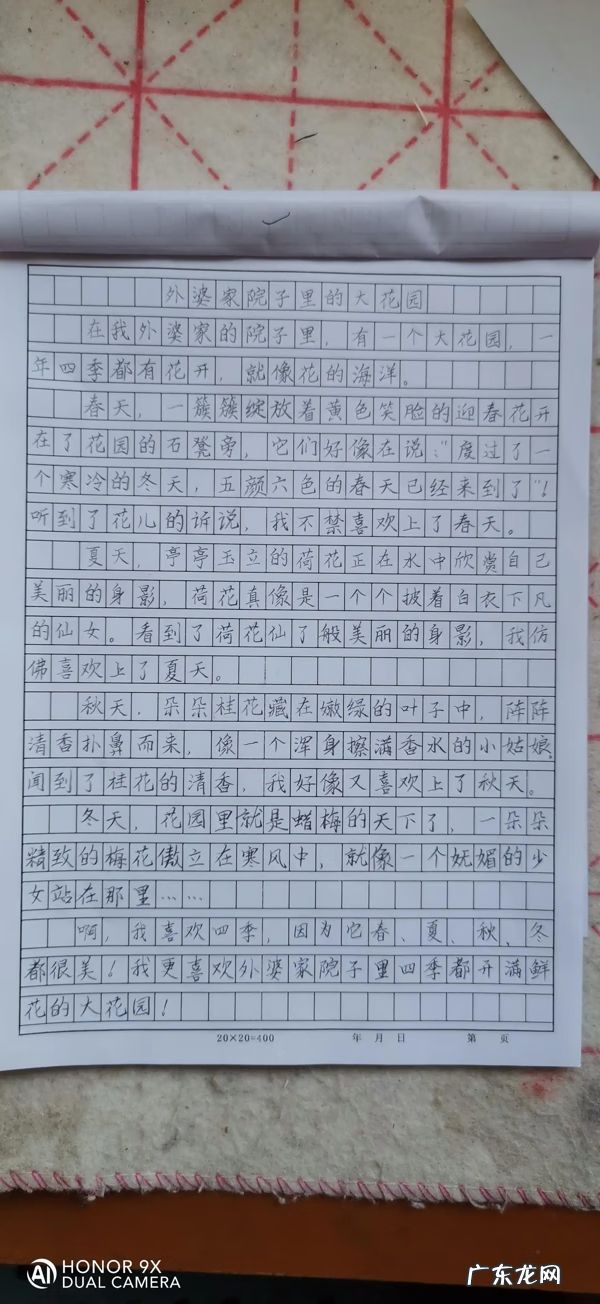 外婆家院子里的大花园
在我外婆家的院子里，有一个大花园，一
年四季都有花开，就像花的海洋。
春天，一簇簇绽放着黄色笑脸的迎春花开
在了花园的石凳旁，它们好像在说："度过了一
个寒冷的冬天，五颜六色的春天已经来到了"！
听到了花儿的诉说，我不禁喜欢上了春天。
夏天，亭亭玉立的荷花正在水中欣赏自己
美丽的身影，荷花真像是一个个披着白衣下凡
的仙女。看到了荷花仙了般美丽的身影，我仿
佛喜欢上了夏天。
秋天．朵朵桂花藏在嫩绿的叶子中，阵阵
清香扑鼻而来，像一个浑身擦满香水的小姑娘．
闻到了桂花的清香，我好像又喜欢上了秋天。
冬天，花园里就是蜡梅的天下了，一朵朵
精致的梅花傲立在寒风中，就像一个妩媚的少
女站在那里……
啊，我喜欢四季，因为它春、夏、秋、冬
都很美！我更喜欢外婆家院子里四季都开满鲜
花的大花园！
20×20=400 年 月 日 第 页
AI HONOR 9X
DUAL CAMERA
广东龙网